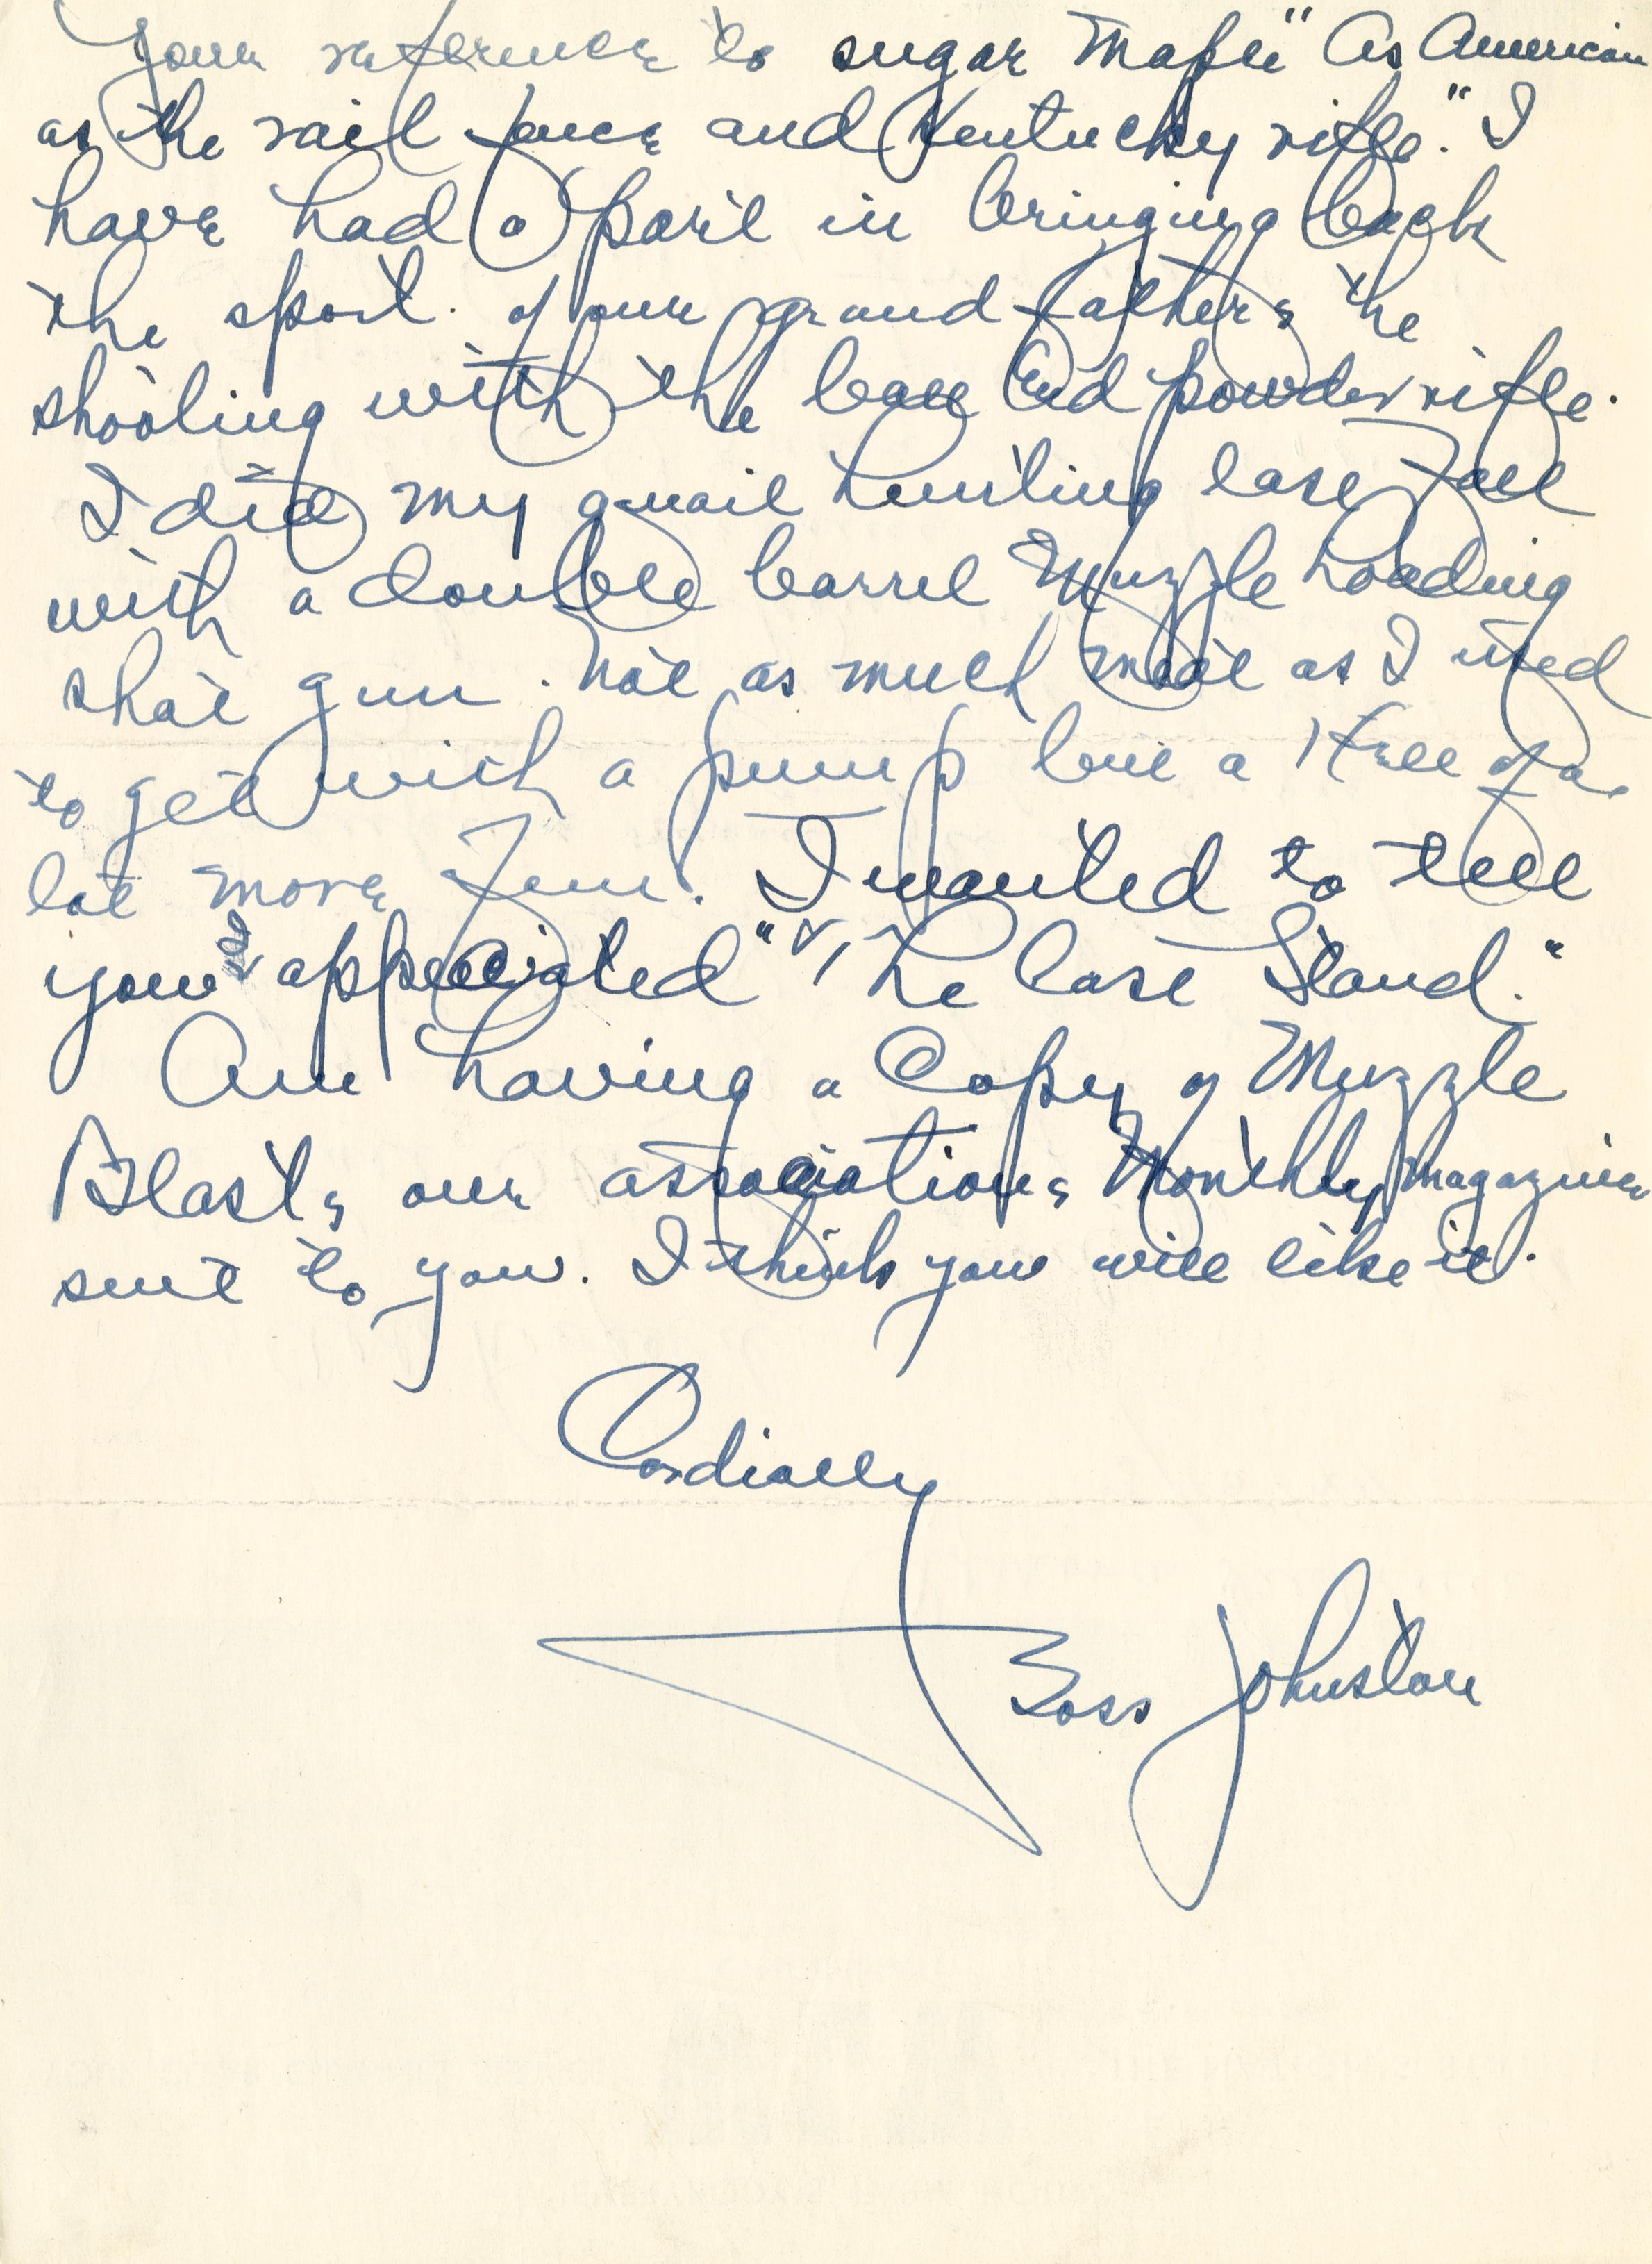 Your reference to sugar Maple "As American
as the rail fence and Kentucky rifle." I
have had a part in bringing back
the sport. of our grand fathers the
shooting with the ball and powder rifle.
I did my quail hunting last Fall
with a double barrel Muzzle Loading
shot gun. Not as much meat as I used
to get with a pump but a Hell of a
lot more Fun. I wanted to tell
you I appreciated "The last Stand."
Am having a Copy of Muzzle
Blasts our associations Monthly Magazine
sent to you. I think you will like it.
Cordially
Boss Johnston